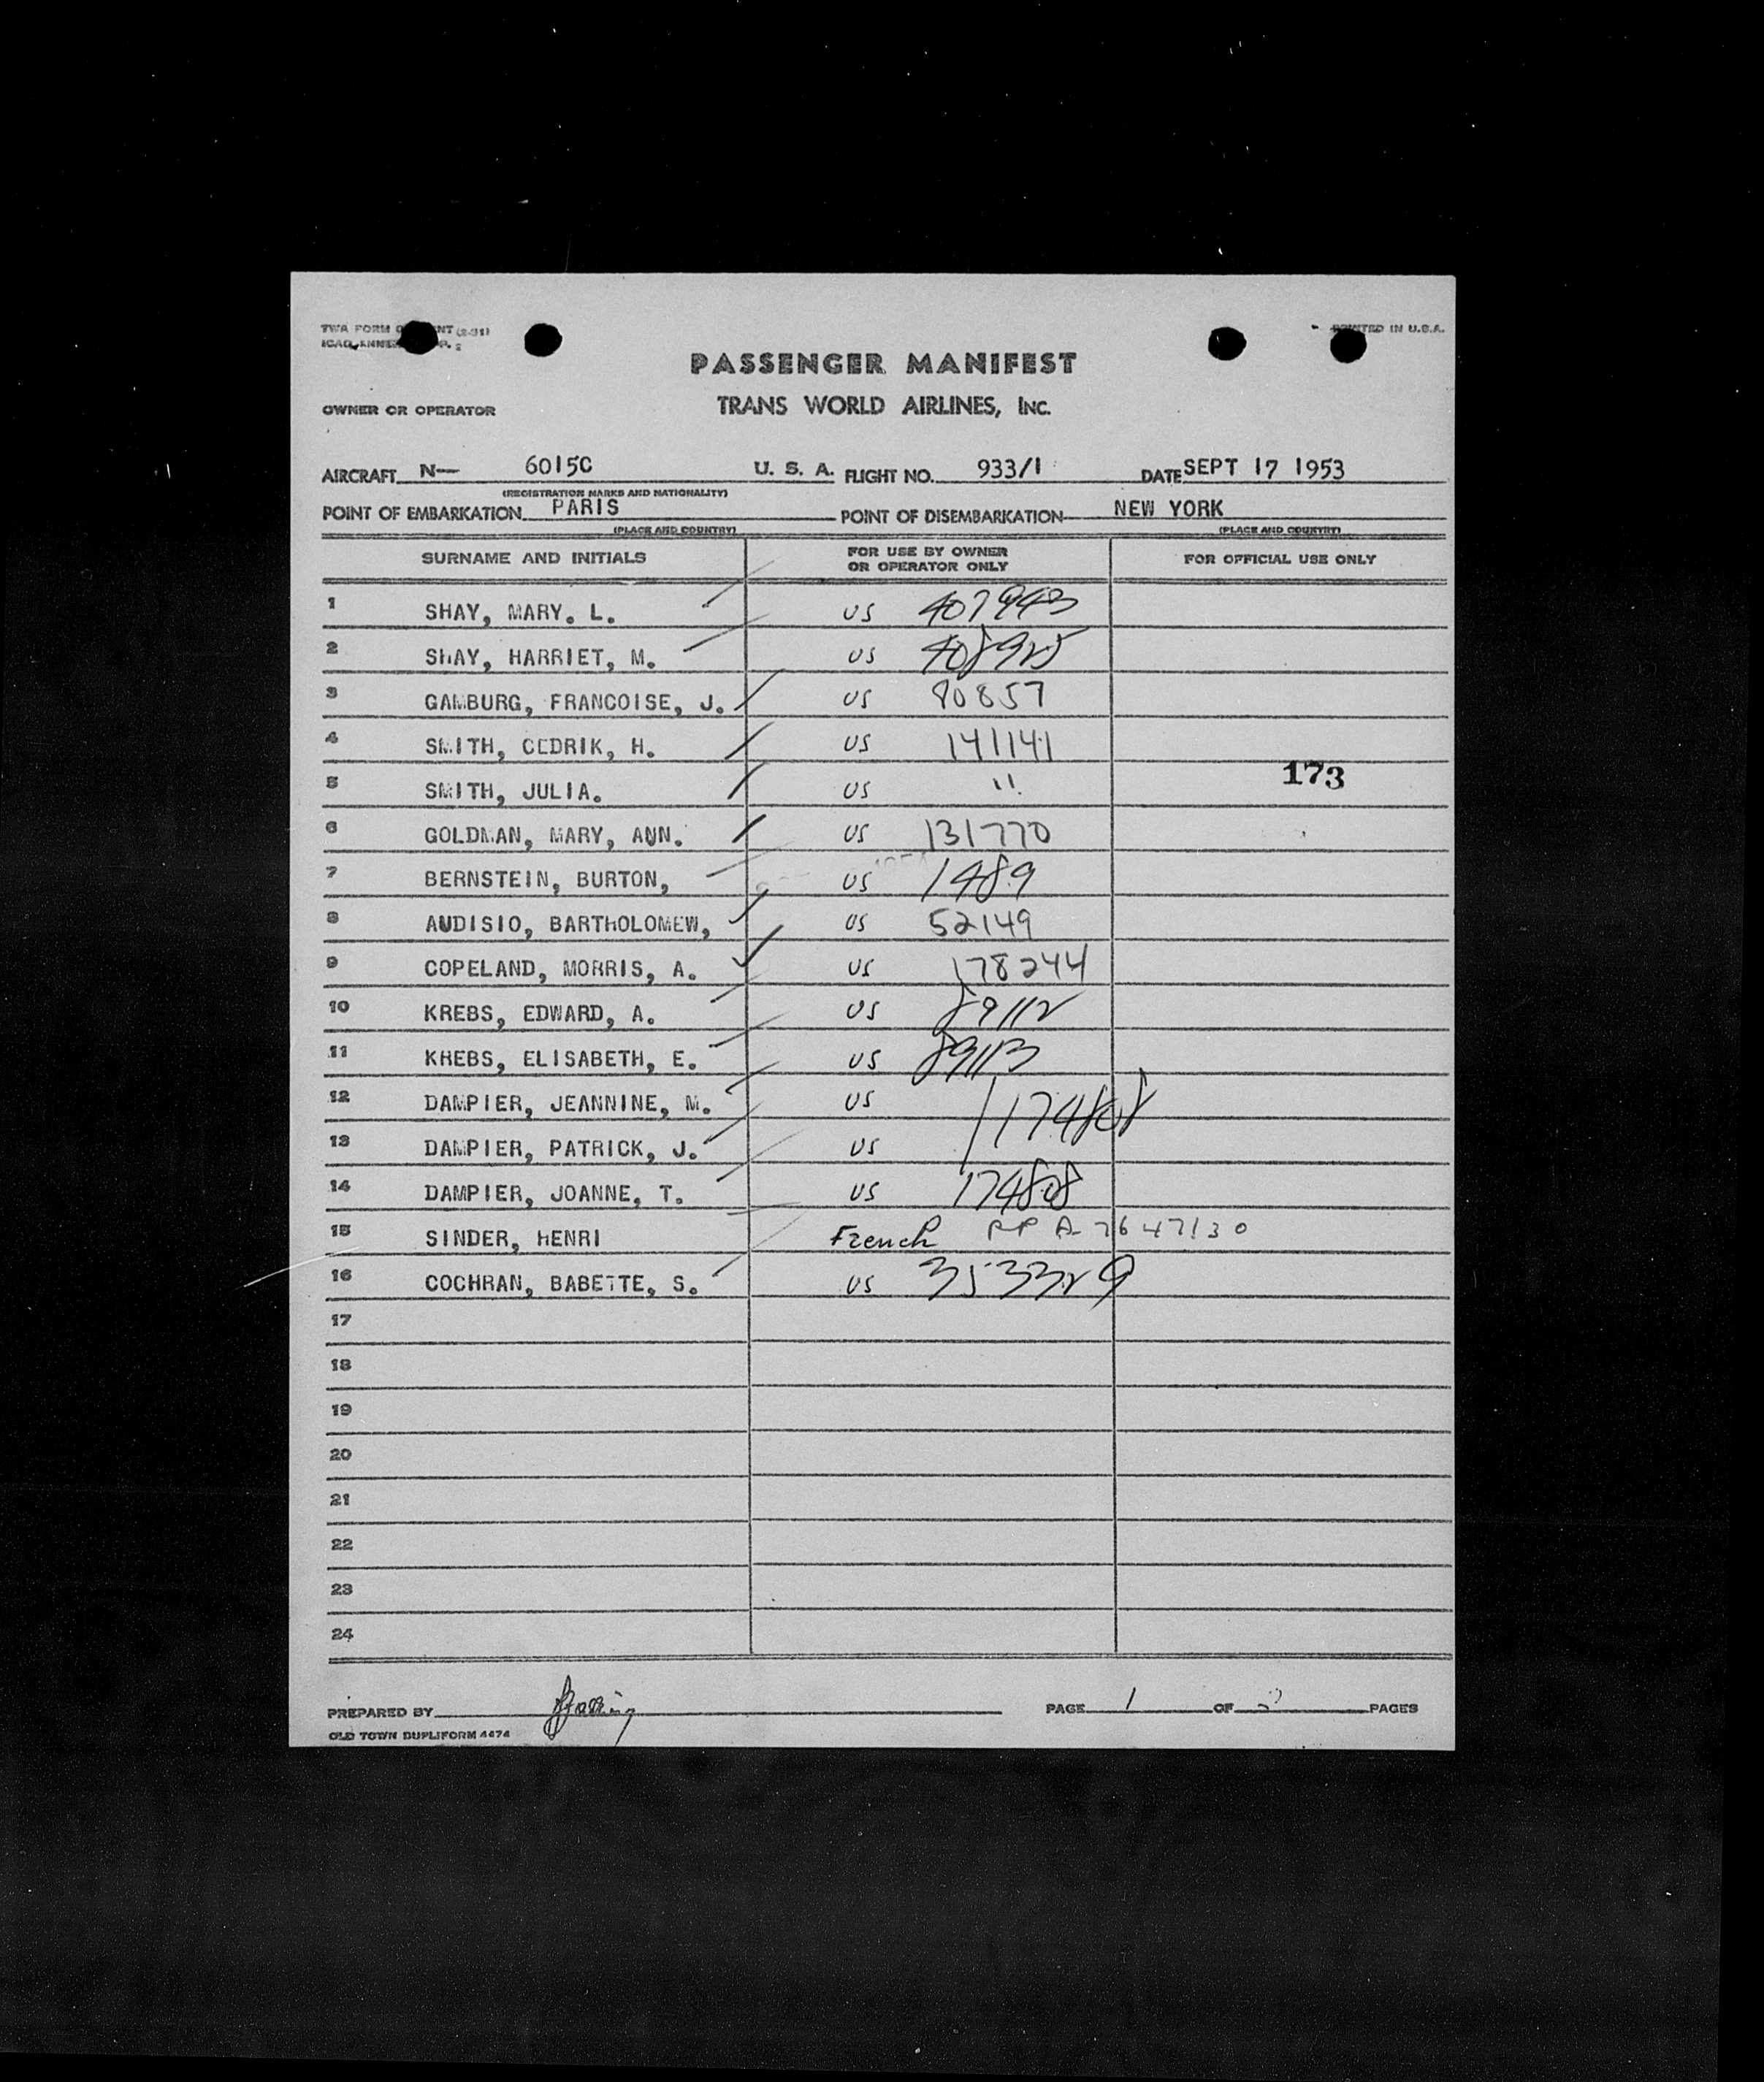 TWA FORM
ICAO ANNEX
PRINTED IN U.S.A.
PASSENGER MANIFEST
OWNER OR OPERATOR TRANS WORLD AIRLINES, INC.
AIRCRAFT N— 6015C U. S. A. FLIGHT NO. 933/1 DATE SEPT 17 1953
(REGISTRATION MARKS AND NATIONALITY)
POINT OF EMBARKATION PARIS POINT OF DISEMBARKATION NEW YORK
(PLACE AND COUNTRY) (PLACE AND COUNTRY)
SURNAME AND INITIALS FOR USE BY OWNER OR OPERATOR ONLY FOR OFFICIAL USE ONLY
1 SHAY, MARY. L. US 407943
2 SHAY, HARRIET, M. US 408925
3 GAMBURG, FRANCOISE, J. US 90857
4 SMITH, CEDRIK, H. US 141141
173
5 SMITH, JULIA. US "
6 GOLDMAN, MARY, AUN. US 131770
7 BERNSTEIN, BURTON, US 1489
8 AUDISIO, BARTHOLOMEW, US 52149
9 COPELAND, MORRIS, A. US 178244
10 KREBS, EDWARD, A. US 89112
11 KREBS, ELISABETH, E. US 89113
12 DAMPIER, JEANNINE, M. US 174808
13 DAMPIER, PATRICK, J. US
14 DAMPIER, JOANNE, T. US 174808
15 SINDER, HENRI French PP A 7647130
16 COCHRAN, BABETTE, S. US 353329
17
18
19
20
21
22
23
24
PREPARED BY PAGE 1 OF PAGES
OLD TOWN DUPLIFORM 4474